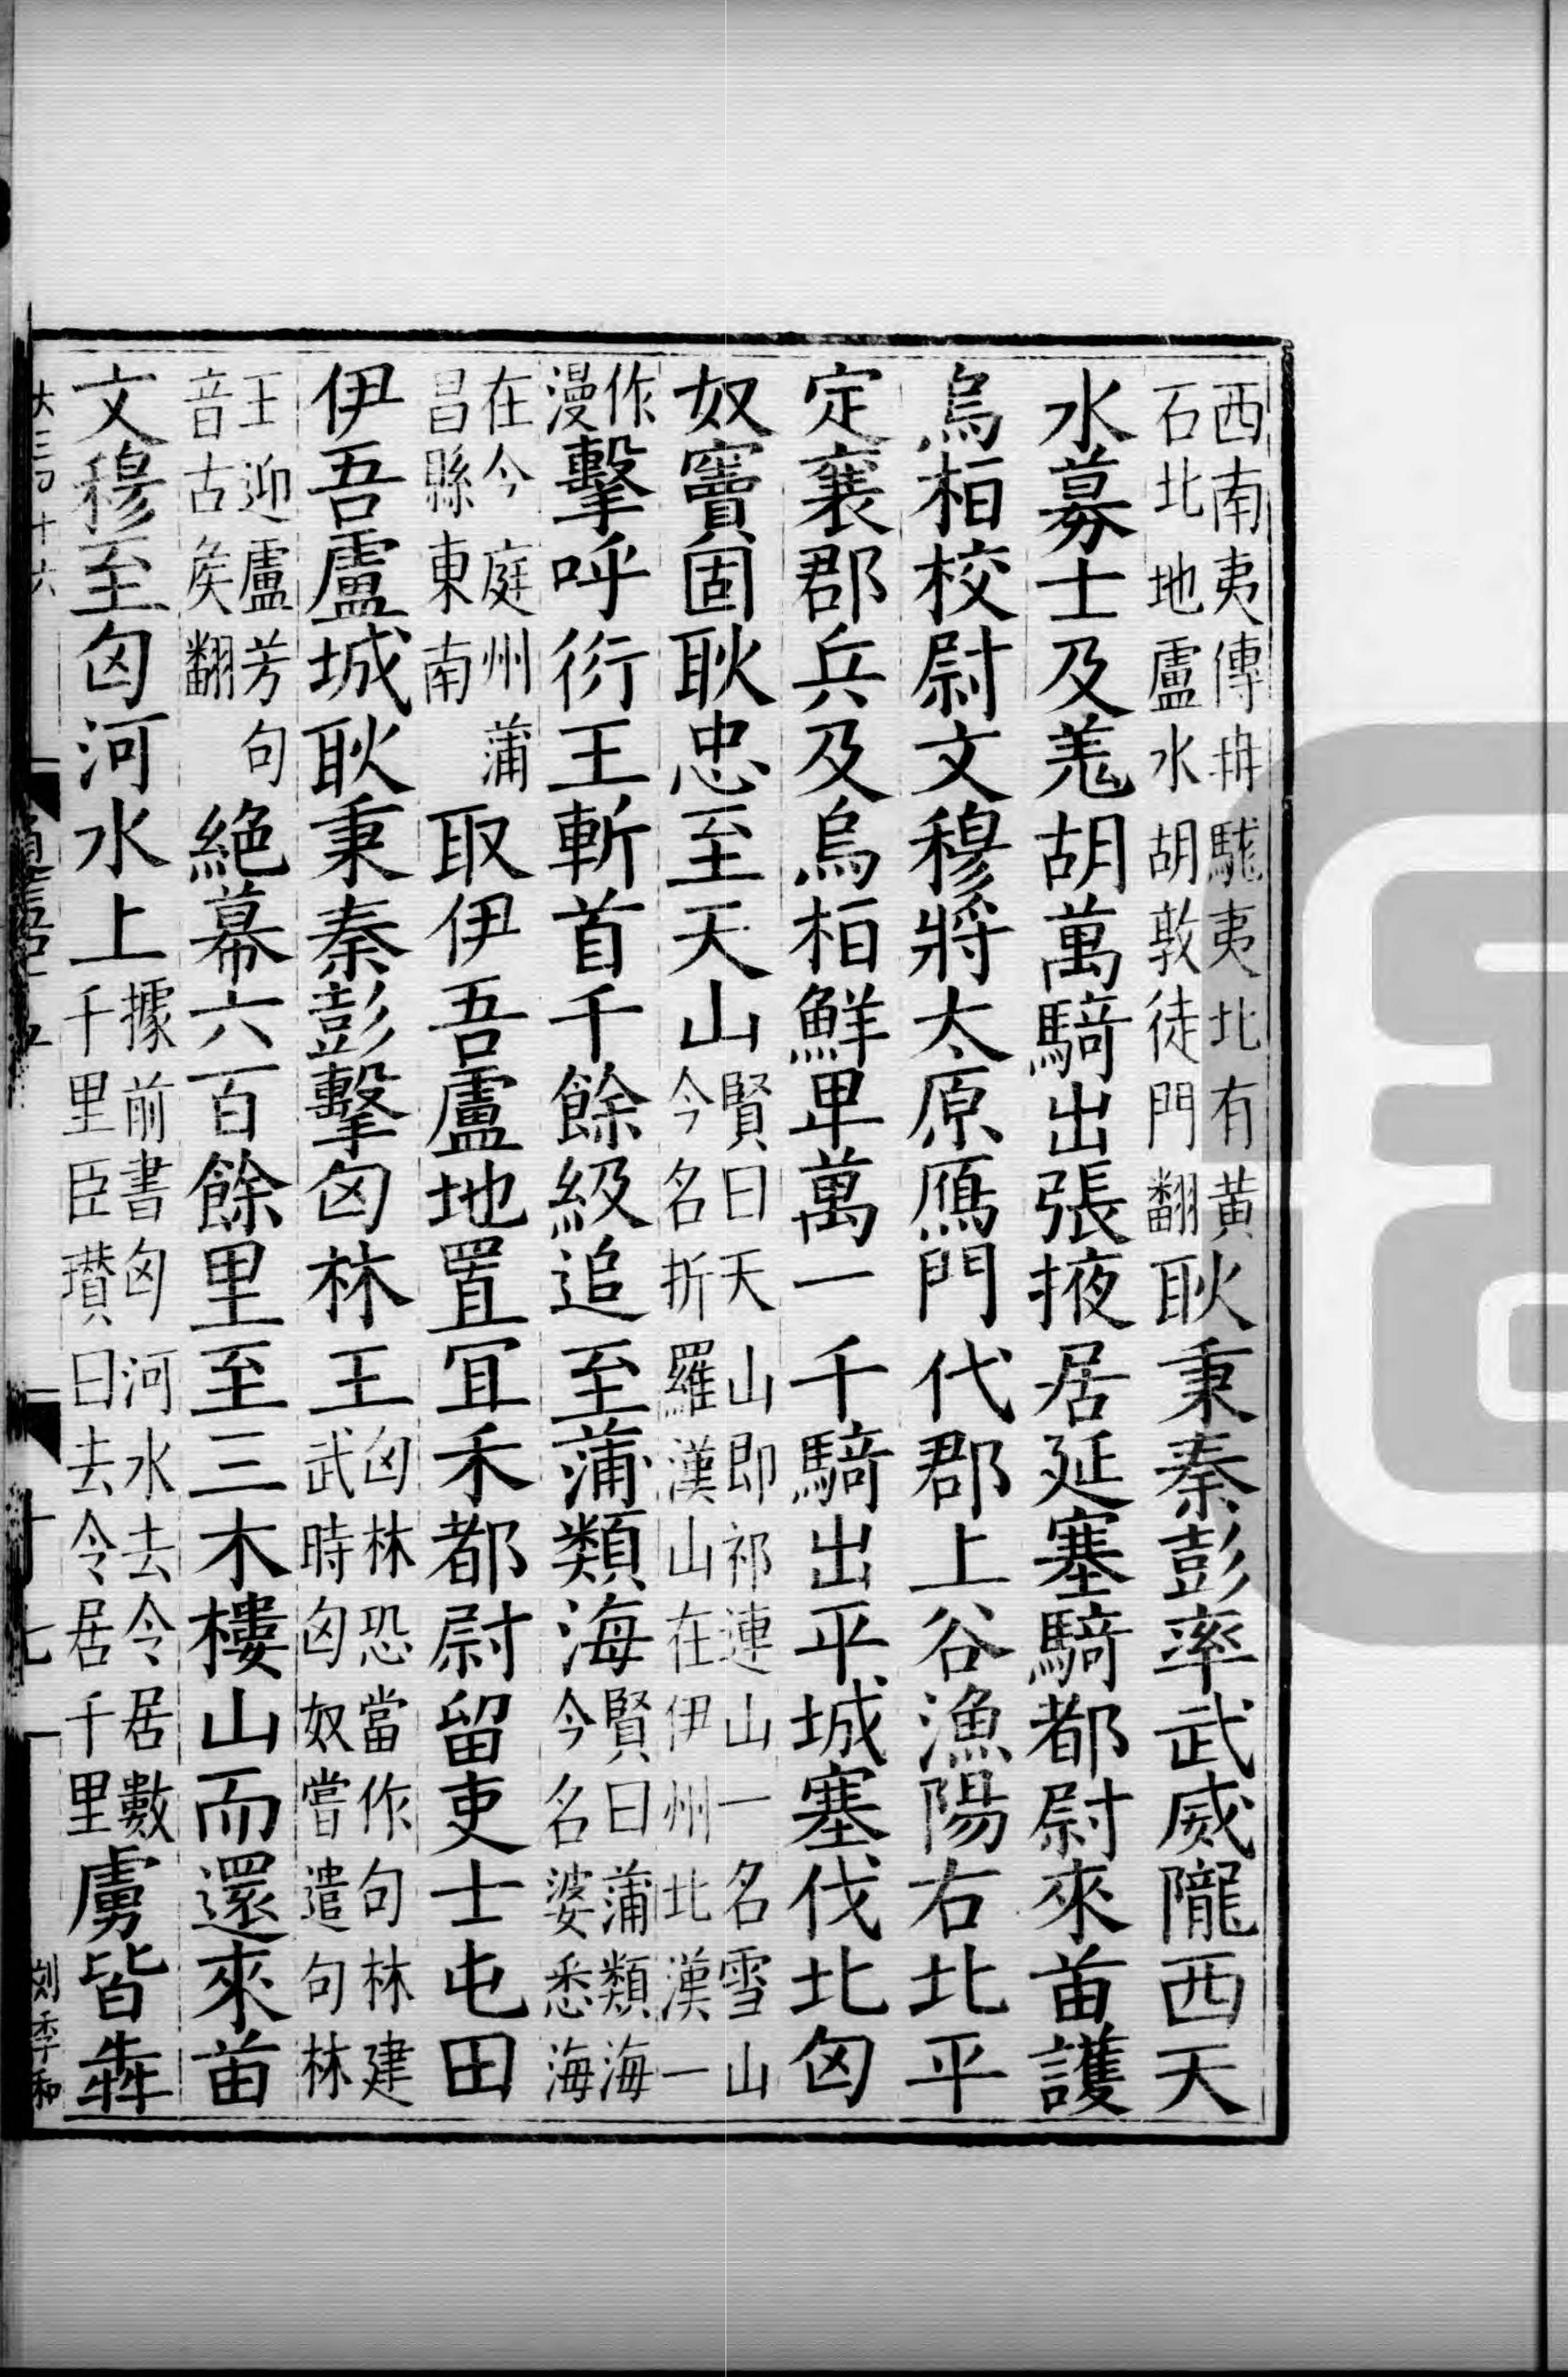 西南夷傳冉駹夷北有黃石北地盧水胡敦徒門翻耿秉秦彭率武威隴西天
水募士及羗胡萬騎出張掖居延塞騎都尉來苗護
烏桓校尉文穆將太原鴈門代郡上谷漁陽右北平
定襄郡兵及烏桓鮮卑萬一千騎出平城塞伐北匈
奴竇固耿忠至天山賢曰天山即祁連山一名雪山今名折羅漢山在伊州北漢一
作漫擊呼衍王斬首千餘級追至蒲類海賢曰蒲類海今名婆悉海
在今庭州蒲昌縣東南取伊吾盧地置冝禾都尉留吏士屯田
伊吾盧城耿秉秦彭擊匈林王匈林恐當作句林建武時匈奴嘗遣句林
王迎盧芳句音古矦翻絶幕六百餘里至三木樓山而還來苗
文穆至匈河水上據前書匈河水去令居數千里臣瓚曰去令居千里虜皆犇